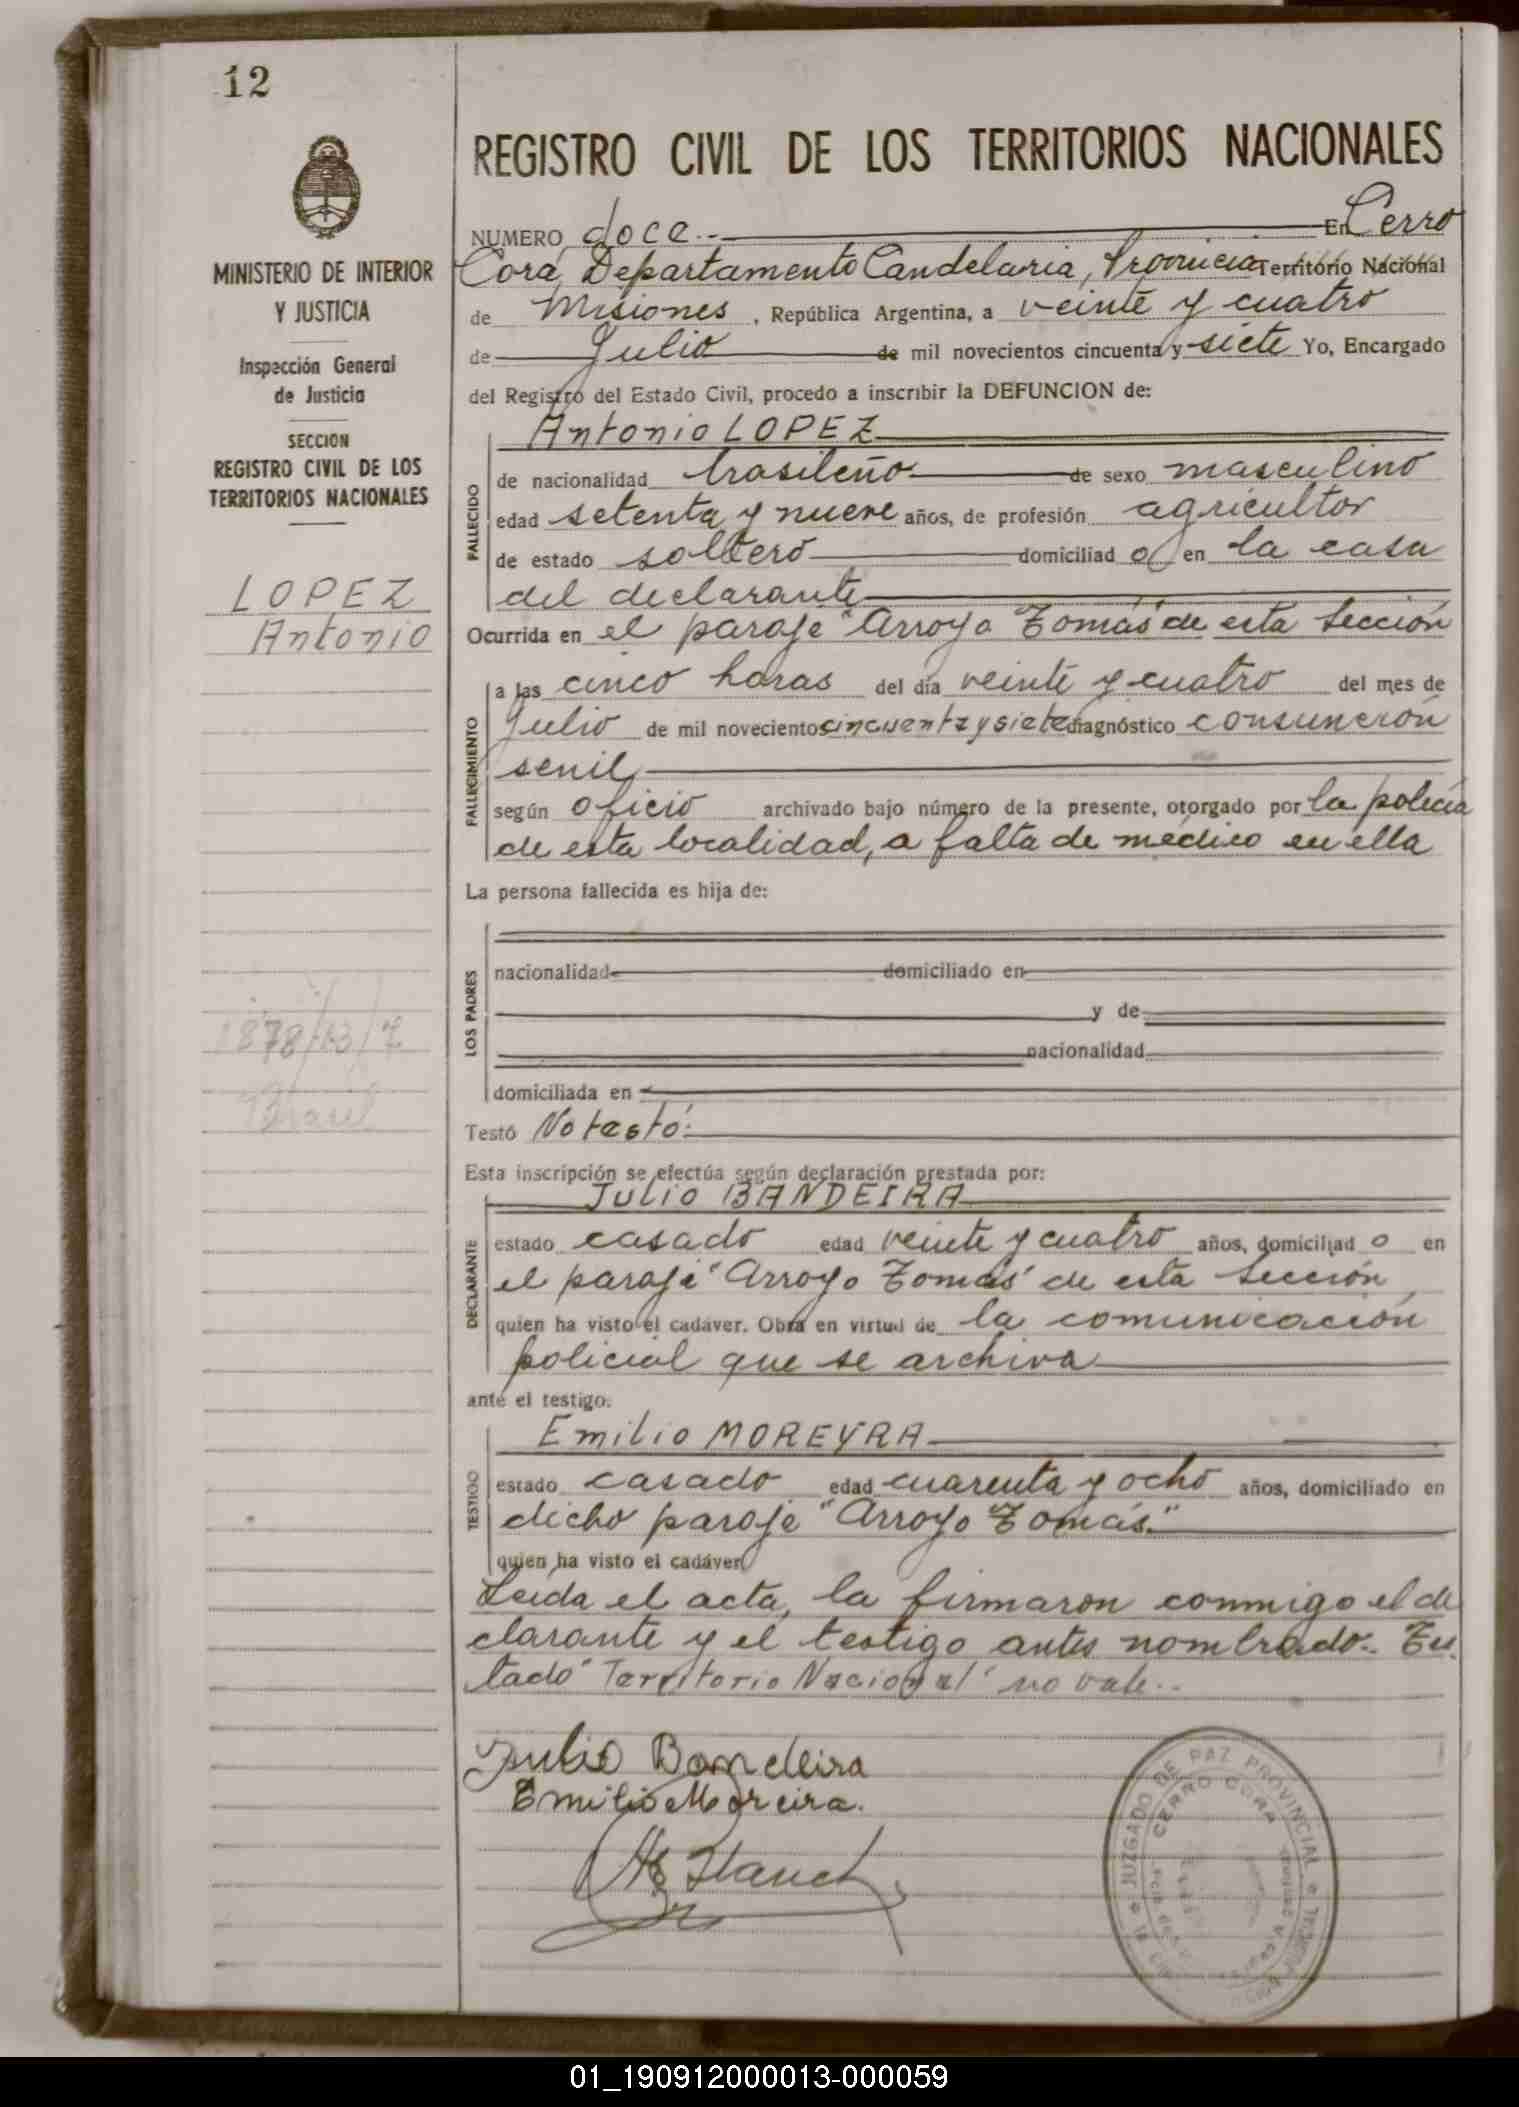 12
MINISTERIO DE INTERIOR
Y JUSTICIA
Inspección General
de Justicia
SECCION
REGISTRO CIVIL DE LOS
TERRITORIOS NACIONALES
LOPEZ
Antonio
1878
Brasil
REGISTRO CIVIL DE LOS TERRITORIOS NACIONALES
NUMERO doce.. En Cerro
Corá, Departamento Candelaria, Provincia Territorio Nacional
de Misiones, República Argentina, a veinte y cuatro
de Julio de mil novecientos cincuenta y siete Yo, Encargado
del Registro del Estado Civil, procedo a inscribir la DEFUNCION de:
Antonio LOPEZ
FALLECIDO
de nacionalidad brasileño de sexo masculino
edad setenta y nueve años, de profesión agricultor
de estado soltero domiciliad o en la casa
del declarante
Ocurrida en el paraje "Arroyo Tomás" de esta Sección
FALLECIMIENTO
a las cinco horas del día veinte y cuatro del mes de
Julio de mil novecientos cincuenta y siete diagnóstico consunción
senil
según oficio archivado bajo número de la presente, otorgado por la policía
de esta localidad, a falta de médico en ella
La persona fallecida es hija de:
LOS PADRES
nacionalidad domiciliado en
y de
nacionalidad
domiciliada en
Testó No testó.
Esta inscripción se efectúa según declaración prestada por:
Julio BANDEIRA
DECLARANTE
estado casado edad veinte y cuatro años, domiciliad o en
el paraje "Arroyo Tomás" de esta Sección
quien ha visto el cadáver. Obra en virtud de la comunicación
policial que se archiva
ante el testigo:
Emilio MOREYRA
TESTIGO
estado casado edad cuarenta y ocho años, domiciliado en
dicho paraje "Arroyo Tomás."
quien ha visto el cadáver
Leída el acta, la firmaron conmigo el de
clarante y el testigo antes nombrado. Tes
tado "Territorio Nacional" no vale..
Julio Bandeira
Emilio Moreira.
JUZGADO DE PAZ PROVINCIAL
CERRO CORA
01_190912000013-000059